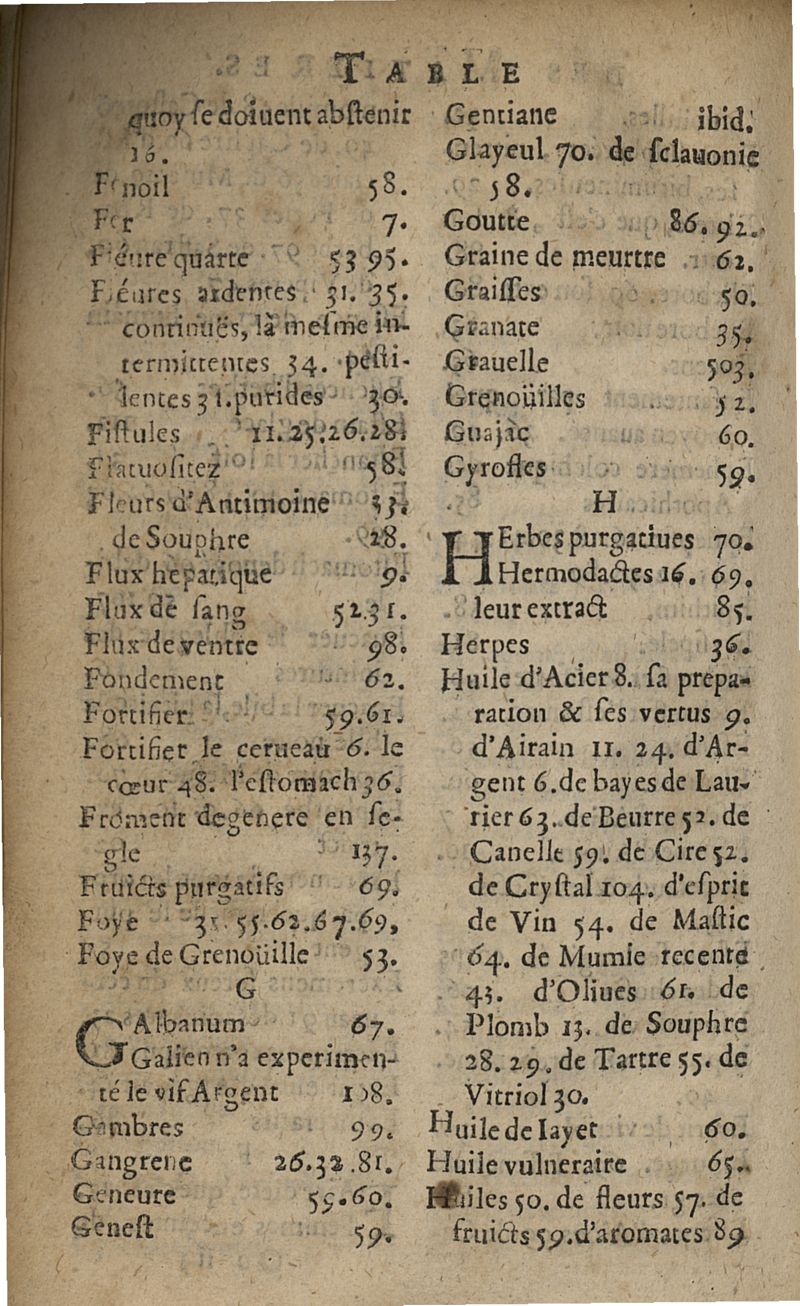 TABLE
quoy ſe doiuent abſtenir
16.
Fenoil 58.
Fer 7.
Fiéure quarte 53 95.
Fiéures ardentes 31. 35.
continuës, là meſme in-
termittentes 34. peſti-
lentes 31. purides 30.
Fiſtules 11.25.26.28.
Flatuoſitez 58.
Fleurs d'Antimoine 33.
de Souphre 28.
Flux hepatique 9.
Flux de ſang 52.31.
Flux de ventre 98.
Fondement 62.
Fortifier 59.61.
Fortifier le cerueau 6. le
cœur 48. l'eſtomach 36.
Froment degenere en ſe-
gle 137.
Fruicts purgatifs 69.
Foye 31. 55.62.67.69,
Foye de Grenoüille 53.
G
GAlbanum 67.
Galien n'a experimen-
té le vif Argent 108.
Gambres 99.
Gangrene 26.32.81.
Geneure 59.60.
Geneſt 59.
Gentiane ibid.
Glayeul 70. de ſclauonie
58.
Goutte 86.92.
Graine de meurtre 62.
Graiſſes 50.
Granate 35.
Grauelle 503.
Grenoüilles 52.
Guajac 60.
Gyrofles 59.
H
HErbes purgatiues 70.
Hermodactes 16. 69.
leur extract 85.
Herpes 36.
Huile d'Acier 8. ſa prepa-
ration & ſes vertus 9.
d'Airain 11. 24. d'Ar-
gent 6. de bayes de Lau-
rier 63. de Beurre 52. de
Canelle 59. de Cire 52.
de Cryſtal 104. d'eſprit
de Vin 54. de Maſtic
64. de Mumie recente
43. d'Oliues 61. de
Plomb 13. de Souphre
28. 29. de Tartre 55. de
Vitriol 30.
Huile de Iayet 60.
Huile vulneraire 65.
Huiles 50. de fleurs 57. de
fruicts 59. d'aromates 89